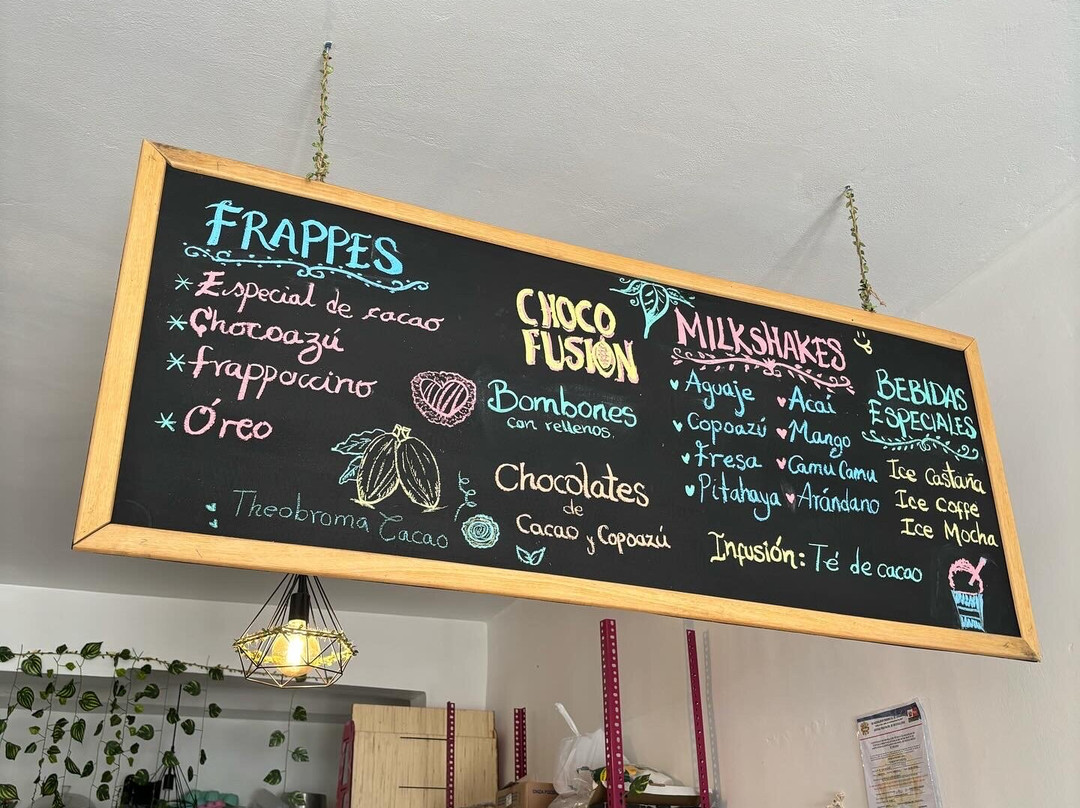 FRAPPES
* Especial de cacao
* Chocoazú
* frappoccino
* Óreo
Theobroma Cacao
CHOCO
FUSIÓN
Bombones
con rellenos.
Chocolates
de
Cacao y Copoazú
MILKSHAKES
Aguaje
Copoazú
Fresa
Pitahaya
Acaí
Mango
Camu Camu
Arándano
Infusión: Té de cacao
BEBIDAS
ESPECIALES
Ice Castaña
Ice Coffe
Ice Mocha